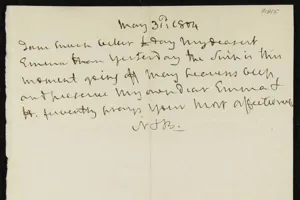 May 31st 1804
I am much better to day My dearest
Emma than yesterday the Ship is this
moment going off May heavens keep
and preserve My own dear Emma &
H. fervently prays your most affectionate
N & B.